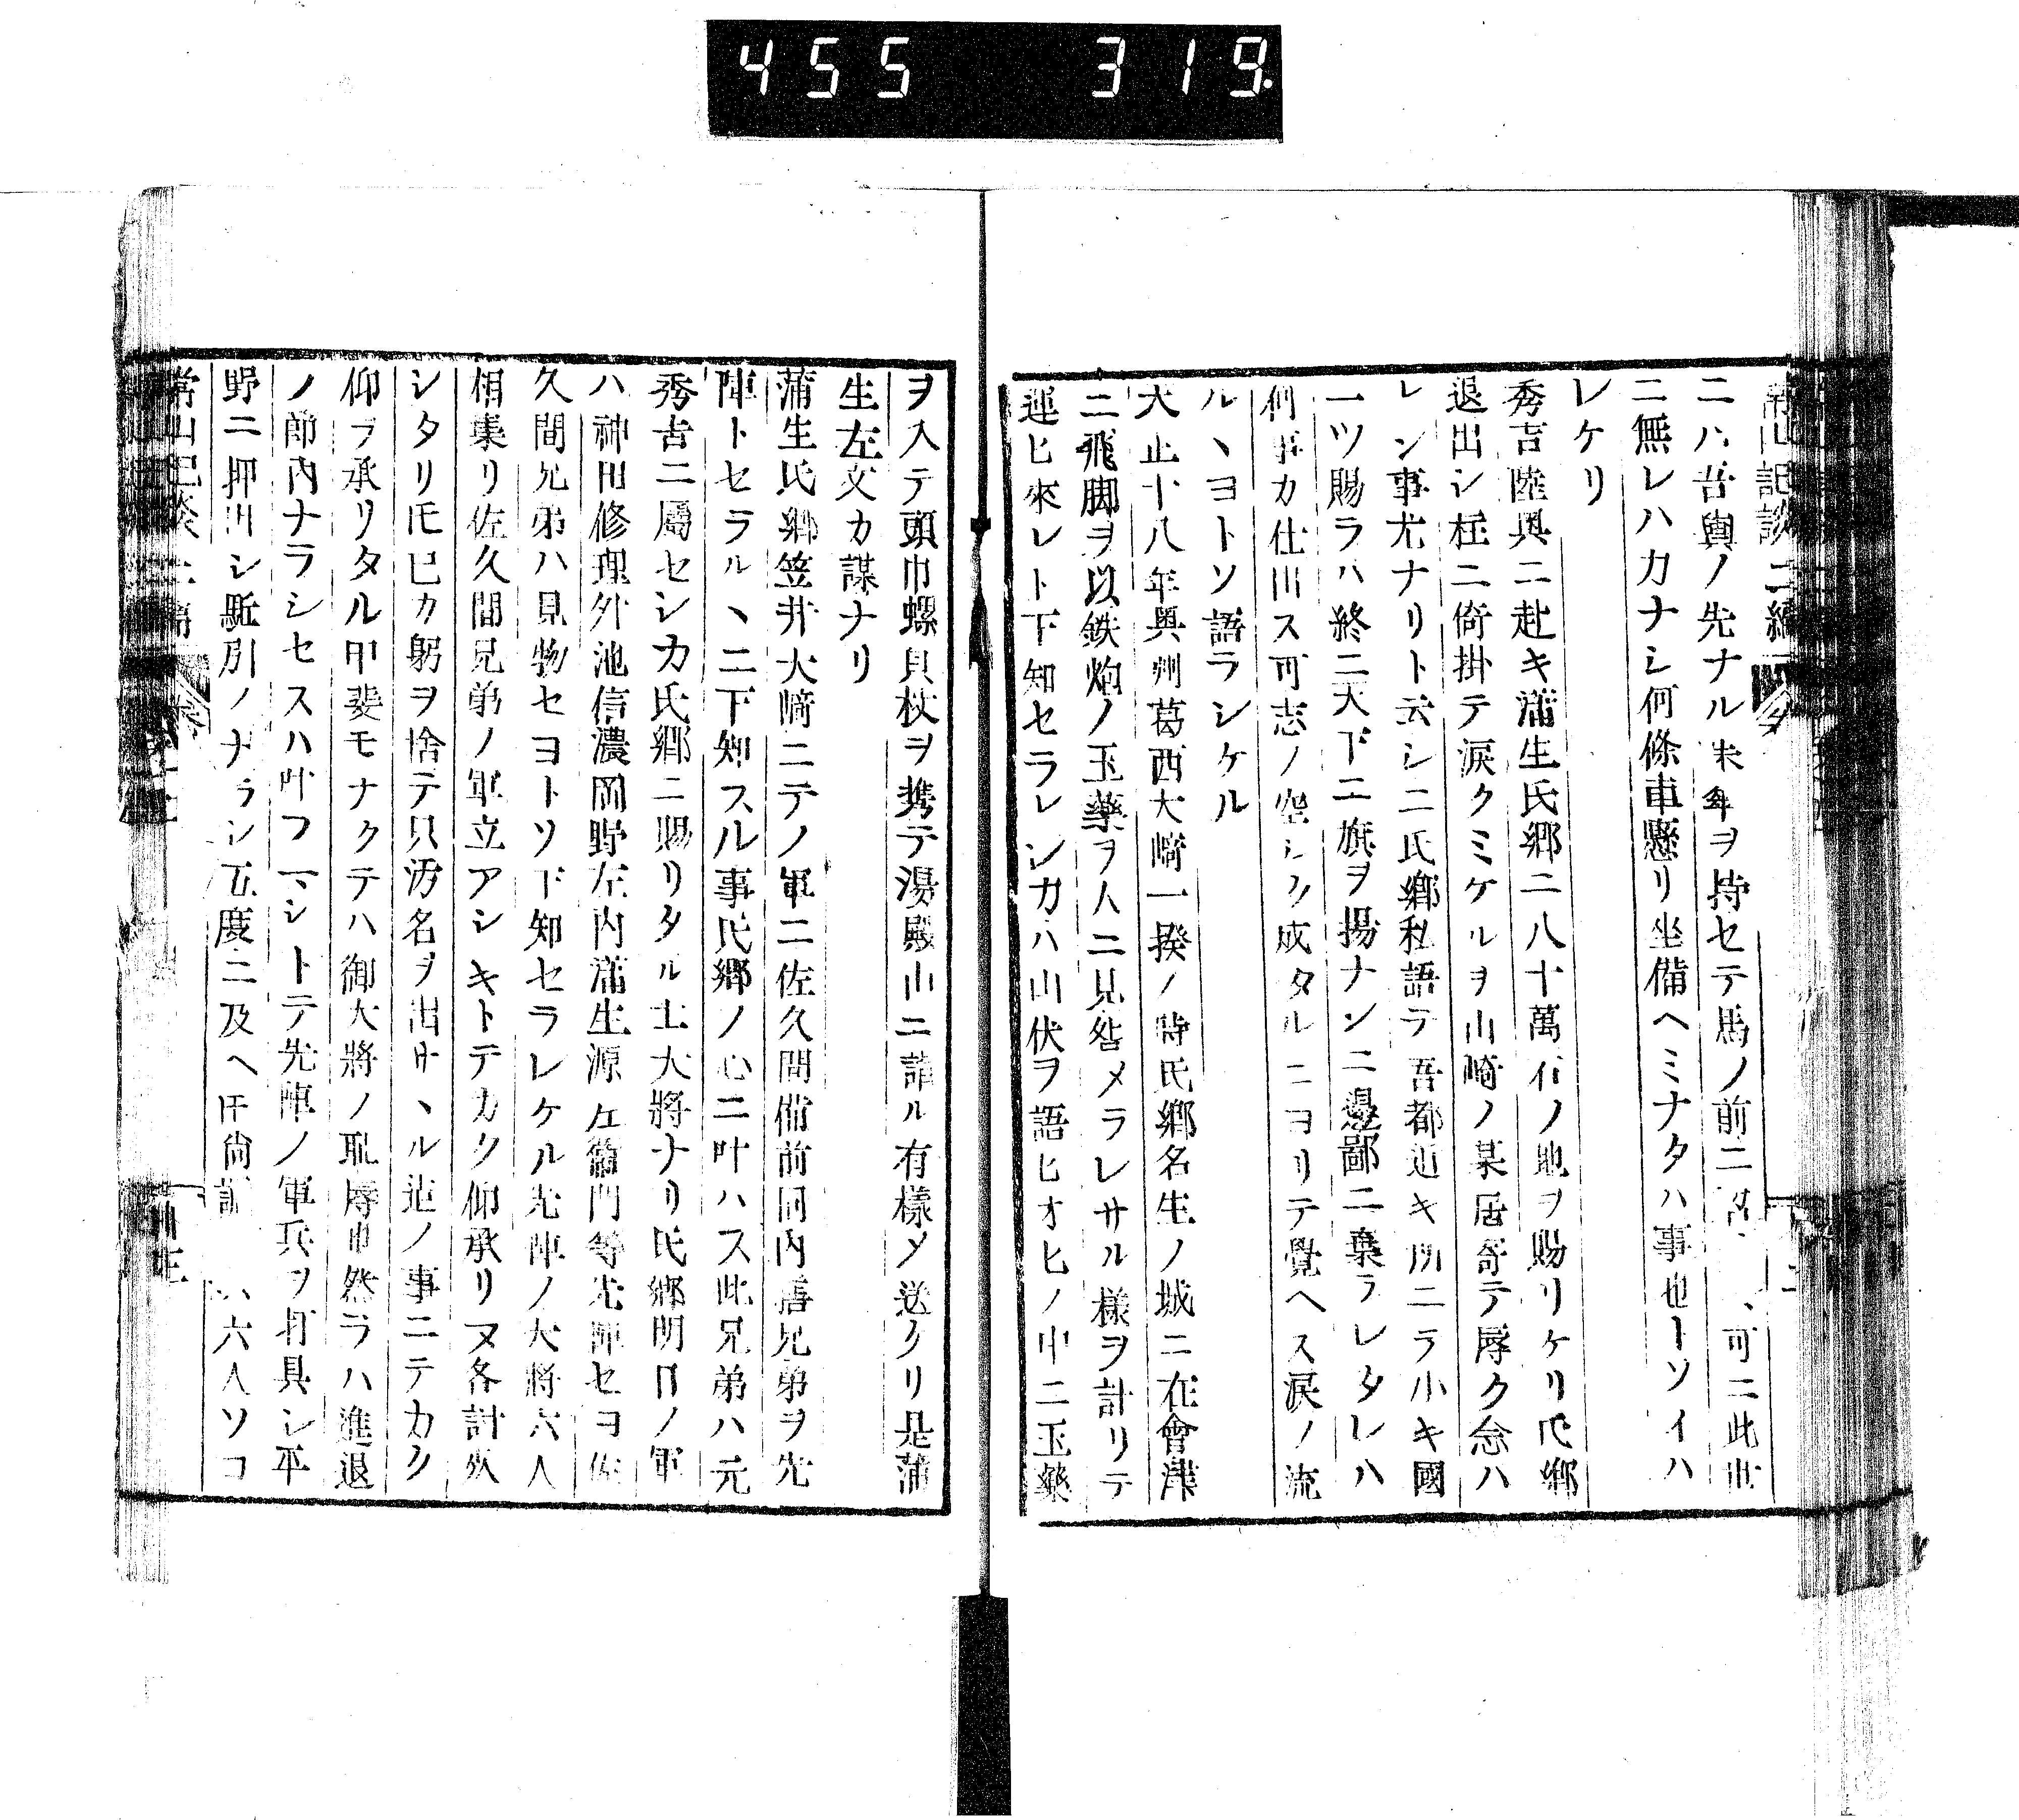 455 319.
常山記談二編
ニハ吾輿ノ先ナル朱傘ヲ持セテ馬ノ前ニ 可ニ此世
ニ無レハカナシ何條車懸リ坐備ヘミナタハ事也トソイハ
レケリ
秀吉陸奥ニ赴キ蒲生氏郷ニ八十萬石ノ地ヲ賜リケリ氏郷
退出シ柱ニ倚掛テ涙クミケルヲ山崎ノ某居寄テ辱ク念ハ
レン事尤ナリト云シニ氏郷私語テ吾都近キ所ニテ小キ國
一ツ賜ラハ終ニ天下ニ旗ヲ揚ナンニ邊鄙ニ棄ラレタレハ
何事カ仕出ス可志ノ空シク成タルニヨリテ覺ヘス涙ノ流
ルヽヨトソ語ラシケル
天正十八年奥州葛西大﨑一揆ノ時氏郷名生ノ城ニ在會津
ニ飛脚ヲ以鉄炮ノ玉藥ヲ人ニ見咎メラレサル様ヲ計リテ
運ヒ來レト下知セラレシカハ山伏ヲ語ヒオヒノ中ニ玉藥
ヲ入テ頭巾螺貝杖ヲ携テ湯殿山ニ詣ル有様メ送クリ是蒲
生左文カ謀ナリ
蒲生氏郷笠井大﨑ニテノ軍ニ佐久間備前同内善兄弟ヲ先
陣トセラルヽニ下知スル事氏郷ノ心ニ叶ハス此兄弟ハ元
秀吉ニ屬セシカ氏郷ニ賜リタル士大將ナリ氏郷明日ノ軍
ハ神田修理外池信濃岡野左内蒲生源左衞門等先陣セヨ佐
久間兄弟ハ見物セヨトソ下知セラレケル先陣ノ大將六人
相集リ佐久間兄弟ノ軍立アシキトテカク仰承リヌ各計畧
シタリ𪜈已カ躬ヲ捨テ只汚名ヲ出サヽル迠ノ事ニテカク
仰ヲ承リタル甲斐モナクテハ御大將ノ恥辱巾然ラハ進退
ノ節内ナラシセスハ叶フマシトテ先陣ノ軍兵ヲ打具シ平
野ニ押出シ駈引ノナラシ五度ニ及ヘ𪜈尚 六人ソコ
常山記談二編